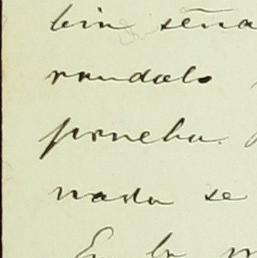 bien seña
randolo
prueba.
nada se
En la